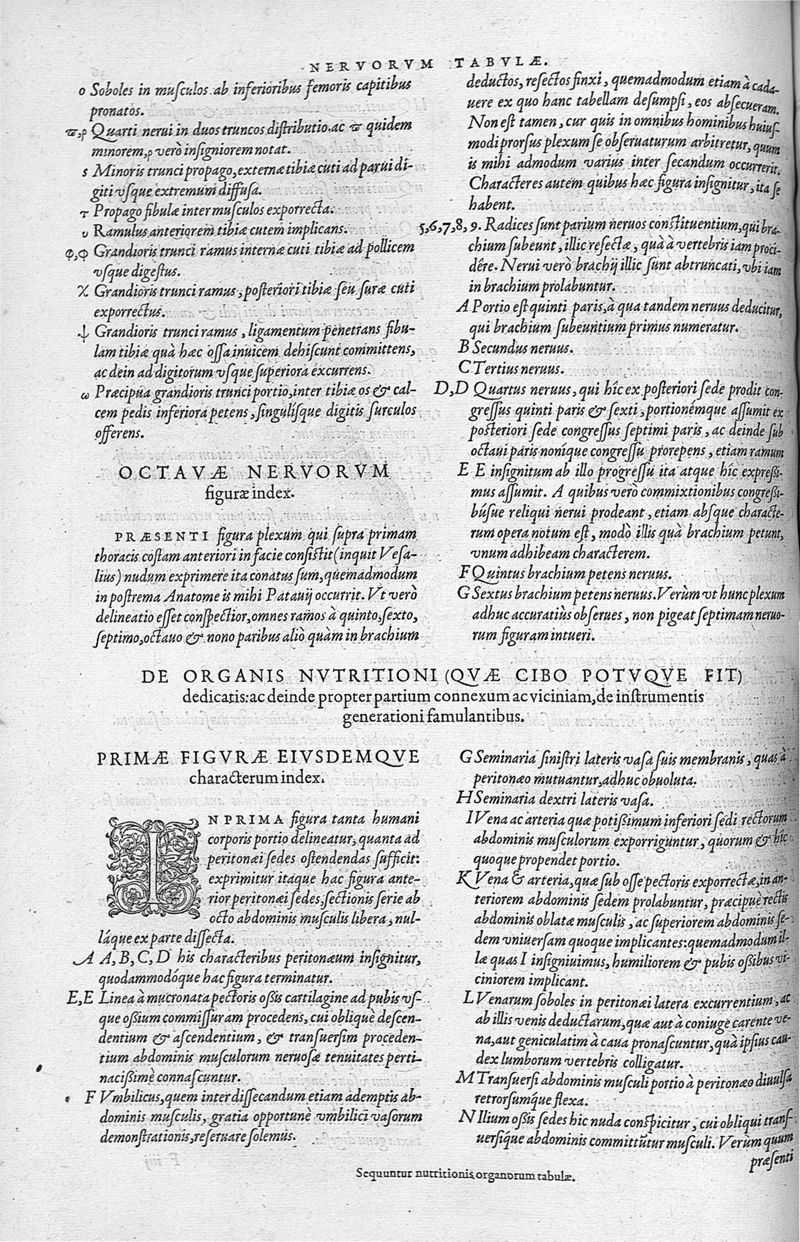 NERVORVM TABVLÆ.
o Soboles in musculos ab inferioribus femoris capitibus
pronatos.
ϖ,ρ Quarti nerui in duos truncos distributio.ac ϖ quidem
minorem,ρ verò insigniorem notat.
s Minoris trunci propago,externæ tibiæ cuti ad parui di-
giti vsque extremum diffusa.
τ Propago fibulæ inter musculos exporrecta.
υ Ramulus anteriorem tibiæ cutem implicans.
φ,φ Grandioris trunci ramus internæ cuti tibiæ ad pollicem
vsque digestus.
χ Grandioris trunci ramus, posteriori tibiæ seu suræ cuti
exporrectus.
ψ Grandioris trunci ramus, ligamentum penetrans fibu-
lam tibiæ quà hæc ossa inuicem dehiscunt committens,
ac dein ad digitorum vsque superiora excurrens.
ω Præcipua grandioris trunci portio,inter tibiæ os & cal-
cem pedis inferiora petens, singulisque digitis surculos
offerens.
OCTAVÆ NERVORVM
figuræ index.
PRÆSENTI figura plexum qui supra primam
thoracis costam anteriori in facie consistit (inquit Vesa-
lius) nudum exprimere ita conatus sum, quemadmodum
in postrema Anatome is mihi Patauij occurrit. Vt verò
delineatio esset conspectior, omnes ramos à quinto, sexto,
septimo, octauo & nono paribus aliò quàm in brachium
deductos, resectos finxi, quemadmodum etiam à cada-
uere ex quo hanc tabellam desumpsi, eos absecueram.
Non est tamen, cur quis in omnibus hominibus huius-
modi prorsus plexum se obseruaturum arbitretur, quum
is mihi admodum varius inter secandum occurrerit.
Characteres autem quibus hæc figura insignitur, ita se
habent.
5,6,7,8,9. Radices sunt parium neruos constituentium, qui bra-
chium subeunt, illic resectæ, quà à vertebris iam proci-
dêre. Nerui verò brachij illic sunt abtruncati, vbi iam
in brachium prolabuntur.
A Portio est quinti paris, à qua tandem neruus deducitur,
qui brachium subeuntium primus numeratur.
B Secundus neruus.
C Tertius neruus.
D,D Quartus neruus, qui hîc ex posteriori sede prodit con-
gressus quinti paris & sexti, portionémque assumit ex
posteriori sede congressus septimi paris, ac deinde sub
octaui paris nonique congressu prorepens, etiam ramum
E E insignitum ab illo progressu ita atque hîc expressi-
mus assumit. A quibus verò commixtionibus congressi-
búsue reliqui nerui prodeant, etiam absque characte-
rum opera notum est, modò illis quà brachium petunt,
vnum adhibeam characterem.
F Quintus brachium petens neruus.
G Sextus brachium petens neruus. Verùm vt hunc plexum
adhuc accuratiùs obserues, non pigeat septimam neruo-
rum figuram intueri.
DE ORGANIS NVTRITIONI (QVÆ CIBO POTVQVE FIT)
dedicatis: ac deinde propter partium connexum ac viciniam, de instrumentis
generationi famulantibus.
PRIMÆ FIGVRÆ EIVSDEMQVE
characterum index.
IN PRIMA figura tanta humani
corporis portio delineatur, quanta ad
peritonæi sedes ostendendas sufficit:
exprimitur itaque hac figura ante-
rior peritonæi sedes, sectionis serie ab
octo abdominis musculis libera, nul-
láque ex parte dissecta.
A A, B, C, D his characteribus peritonæum insignitur,
quodammodóque hac figura terminatur.
E,E Linea à mucronata pectoris ossis cartilagine ad pubis vs-
que ossium commissuram procedens, cui obliquè descen-
dentium & ascendentium, & transuersim proceden-
tium abdominis musculorum neruosæ tenuitates perti-
nacissimè connascuntur.
F Vmbilicus, quem inter dissecandum etiam ademptis ab-
dominis musculis, gratia opportunè vmbilici vasorum
demonstrationis, reseruare solemus.
G Seminaria sinistri lateris vasa suis membranis, quas à
peritonæo mutuantur, adhuc obuoluta.
H Seminaria dextri lateris vasa.
I Vena ac arteria quæ potissimum inferiori sedi rectorum
abdominis musculorum exporriguntur, quorum & hîc
quoque propendet portio.
K Vena & arteria, quæ sub osse pectoris exporrectæ, in an-
teriorem abdominis sedem prolabuntur, præcipuè rectis
abdominis oblatæ musculis, ac superiorem abdominis se-
dem vniuersam quoque implicantes: quemadmodum il-
læ quas I insigniuimus, humiliorem & pubis ossibus vi-
ciniorem implicant.
L Venarum soboles in peritonæi latera excurrentium, ac
ab illis venis deductarum, quæ aut à coniuge carente ve-
na, aut geniculatim à caua pronascuntur, quà ipsius cau-
dex lumborum vertebris colligatur.
M Transuersi abdominis musculi portio à peritonæo diuulsa
retrorsumque flexa.
N Ilium ossis sedes hic nuda conspicitur, cui obliqui trans-
uersique abdominis committûtur musculi. Verum quum
præsenti
Sequuntur nutritionis organorum tabulæ.